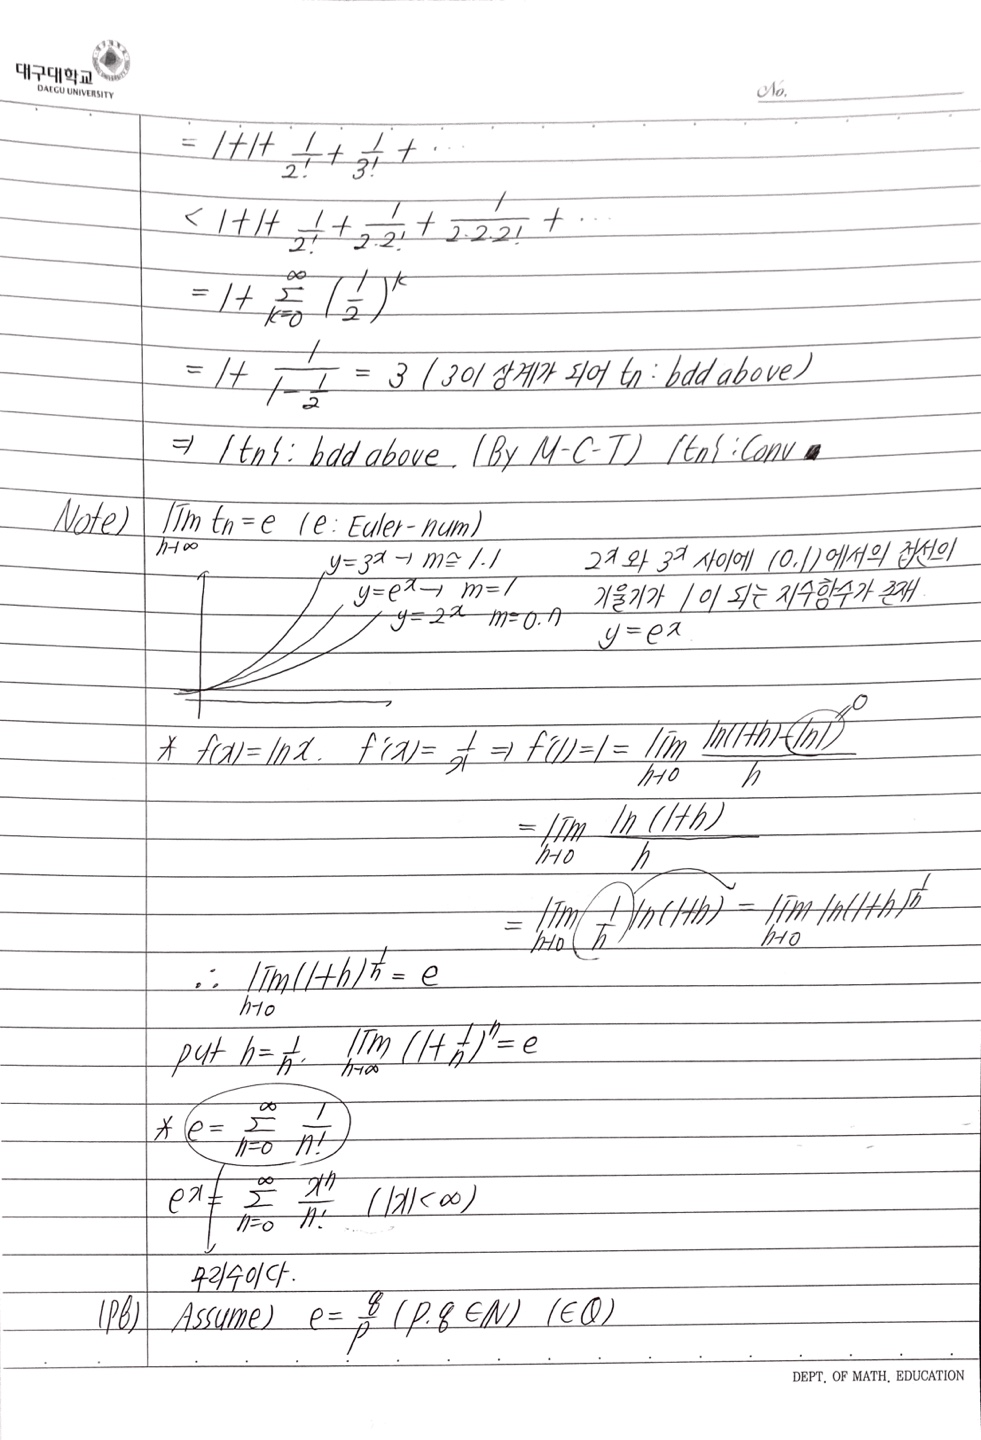 대구대학교
DAEGU UNIVERSITY
No.
= 1+1+ 1/2! + 1/3! + ...
< 1+1+ 1/2! + 1/2·2! + 1/2·2·2! + ...
= 1+ ∞Σk=0 (1/2)^k
= 1+ 1/(1-1/2) = 3 (3이 상계가 되어 tn : bdd above)
⇒ {tn} : bdd above. (By M-C-T) {tn} : Conv ■
Note) lim n→∞ tn = e (e : Euler-num)
y=3^x → m≅1.1
y=e^x → m=1
y=2^x m=0.7
2^x와 3^x 사이에 (0.1)에서의 접선의
기울기가 1이 되는 지수함수가 존재
y=e^x
* f(x)=lnx. f'(x)= 1/x ⇒ f'(1)=1= lim h→0 (ln(1+h)-ln1)/h 0
= lim h→0 ln(1+h)/h
= lim h→0 (1/h) ln(1+h) = lim h→0 ln(1+h)^(1/h)
∴ lim h→0 (1+h)^(1/h) = e
put h= 1/n. lim n→∞ (1+ 1/n)^n = e
* e= ∞Σn=0 1/n!
e^x= ∞Σn=0 x^n/n! (|x|<∞)
무리수이다.
(pf) Assume) e= q/p (p.q ∈N) (∈Q)
DEPT. OF MATH. EDUCATION